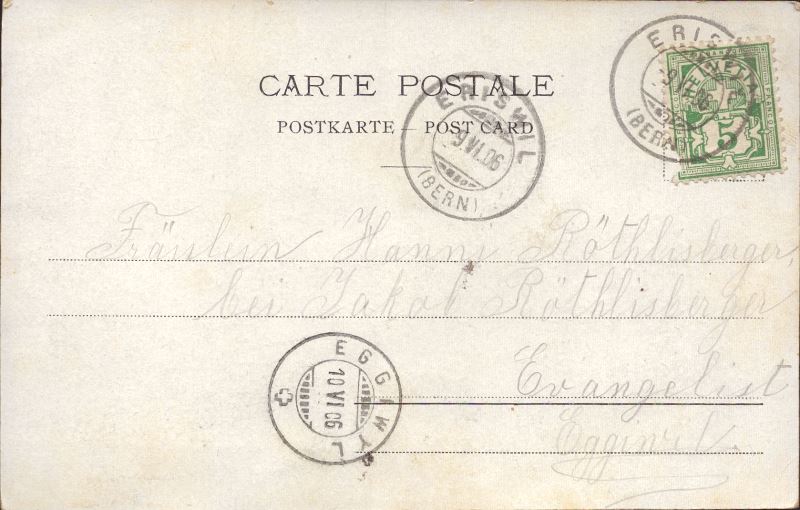 CARTE POSTALE
POSTKARTE – POST CARD
ERISWIL
9.VI.06
(BERN)
ERISW
HELVETIA
5
(BERN)
Fräulein Hanni Röthlisberger,
bei Jakob Röthlisberger
Evangelist
Eggiwil.
EGGIWYL
10 VI 06